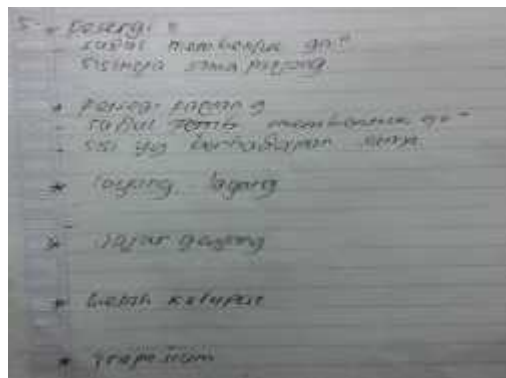 5 * persegi :
- sudut membentuk 90°
- sisinya sama panjang
* persegi panjang
- sudut membentuk 90°
- sisi yg berhadapan sama
* layang layang
* jajar genjang
* belah ketupat
* trapesium